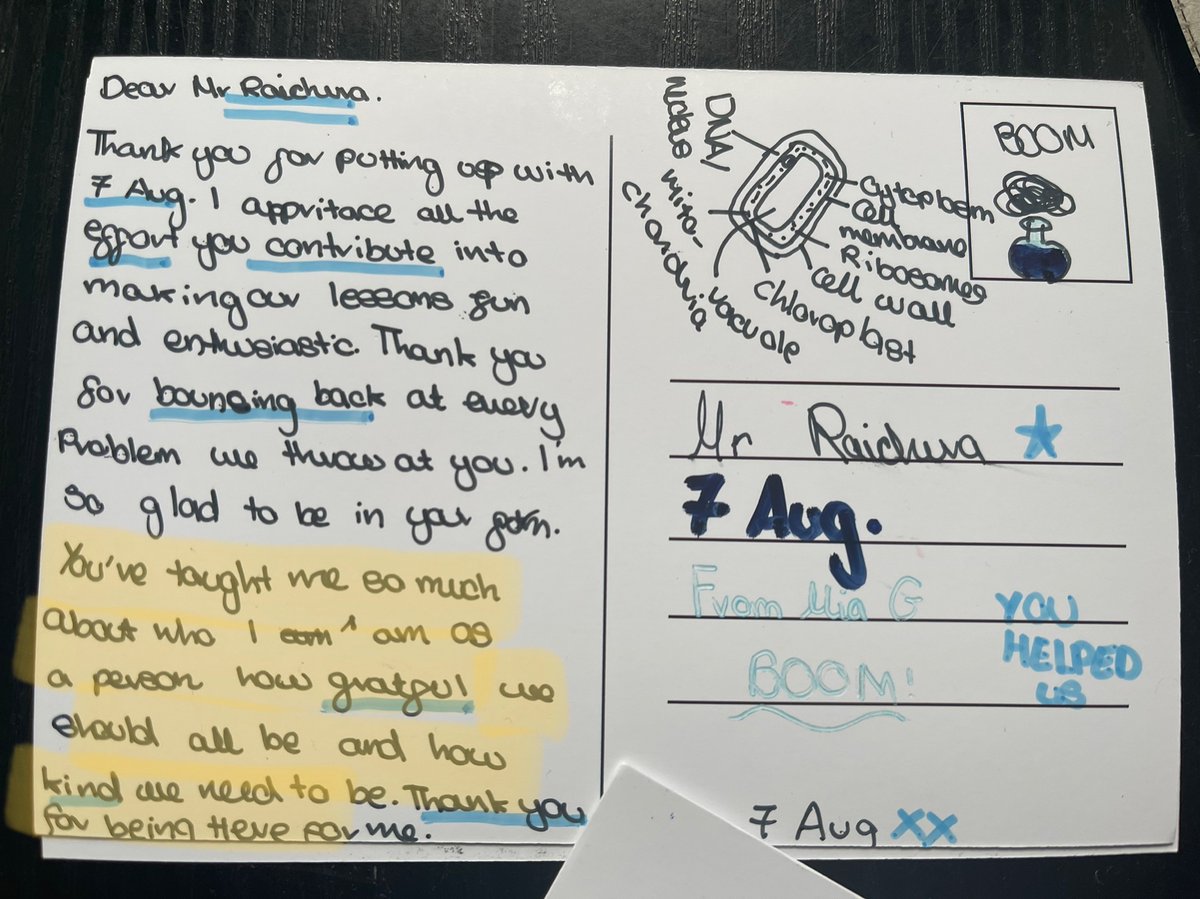 Dear Mr Raichura.
Thank you for putting up with
7 Aug. I appritace all the
effort you contribute into
making our lessons fun
and enthusiastic. Thank you
for bouncing back at every
Problem we throw at you. I'm
so glad to be in your form.
You've taught me so much
about who I am as
a person how gratful we
should all be and how
kind we need to be. Thank you
for being there for me.
DNA
nucleus
mito-
chondria
vacuole
chloroplast
cell wall
Ribosomes
cell
membrane
Cytoplasm
BOOM
Mr Raichura
7 Aug.
From Mia G
BOOM!
YOU
HELPED
US
7 Aug XX